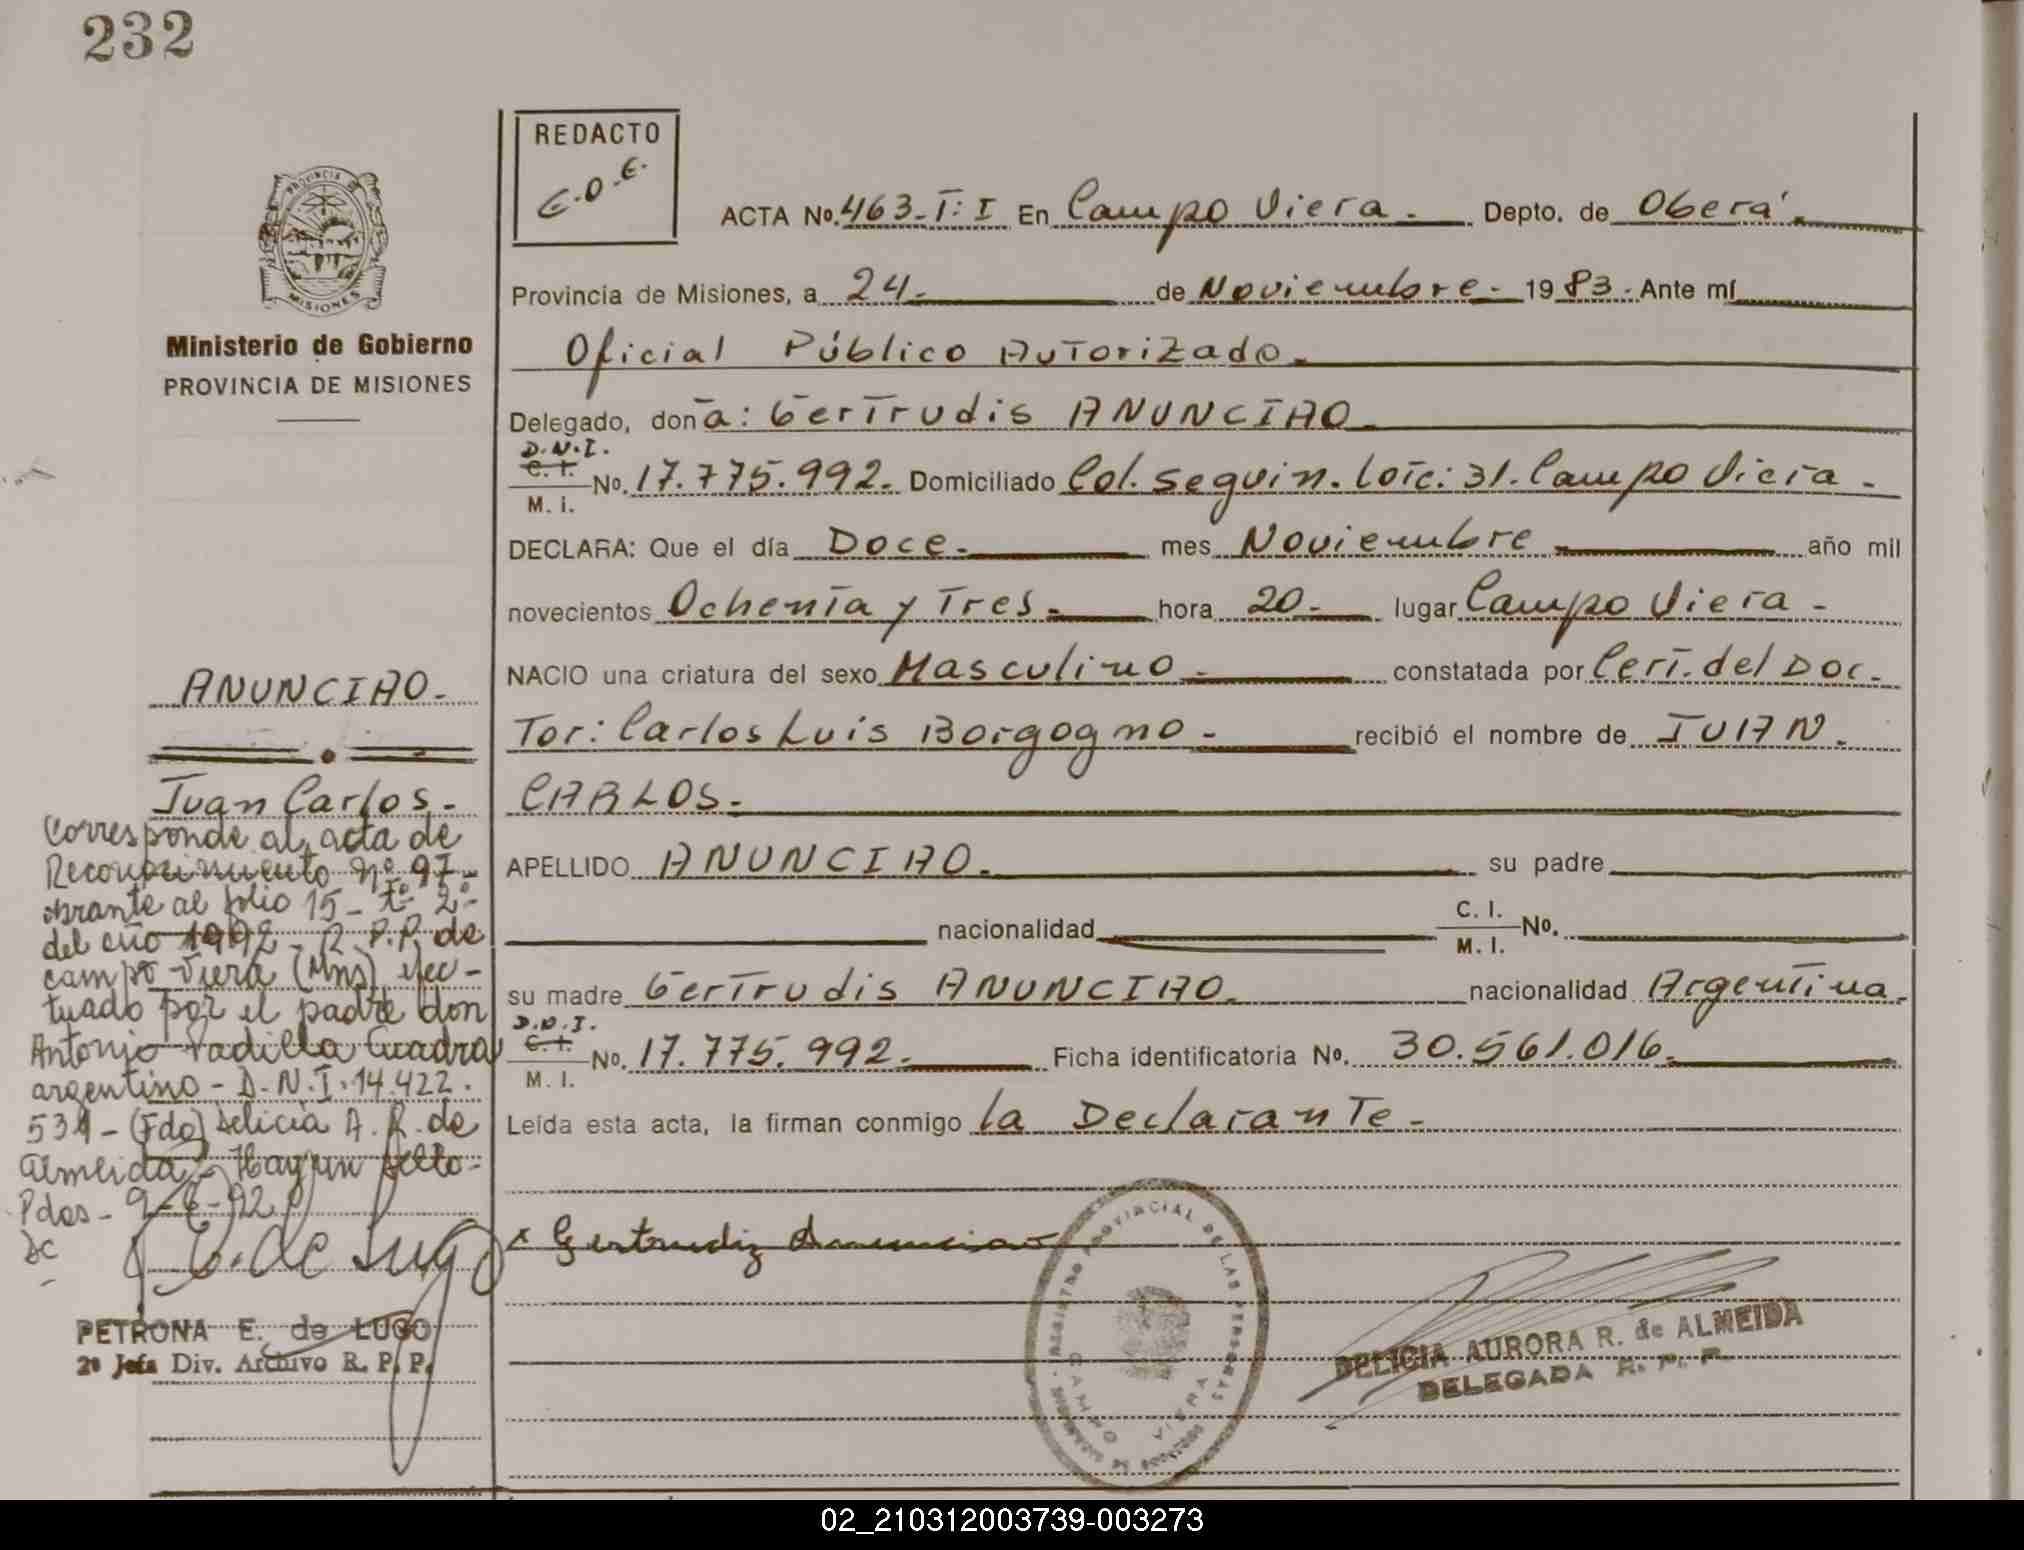 232
REDACTO
E.O.E.
ACTA No. 463-T: I En Campo Viera.- Depto. de Oberá.
Provincia de Misiones, a 24.- de Noviembre.- 1983. Ante mí
Oficial Público Autorizado.-
Delegado, doña: Gertrudis ANUNCIAO.-
D.N.I.
C. I.
M. i. No. 17.775.992. Domiciliado Col. Seguin. Lote: 31. Campo Viera.-
DECLARA: Que el día Doce.- mes Noviembre.- año mil
novecientos Ochenta y Tres.- hora 20.- lugar Campo Viera.-
NACIO una criatura del sexo Masculino.- constatada por Cert. del Doc-
tor: Carlos Luis Borgogno.- recibió el nombre de JUAN.
CARLOS.-
APELLIDO ANUNCIAO.- su padre
nacionalidad C. I.
M. I. No.
su madre Gertrudis ANUNCIAO.- nacionalidad Argentina.
D.N.I.
C. I.
M. I. No. 17.775.992.- Ficha identificatoria No. 30.561.016.-
Leída esta acta, la firman conmigo la Declarante.-
x Gertrudiz Anunciao
PROVINCIA DE
MISIONES
Ministerio de Gobierno
PROVINCIA DE MISIONES
ANUNCIAO.-
Juan Carlos.-
Corresponde al acta de
Reconocimiento Nº 97-
obrante al folio 15- Tº 2º
del año 1992- R.P.P. de
campo Viera (Mns) efec-
tuado por el padre don
Antonio Padilla Cuadra
argentino- D.N.I. 14.422.
531- (Fdo) Delicia A. R. de
Almeida- Hay un sello-
Pdas- 9-6-92
DC
E. de Lugo
PETRONA E. de LUGO
2ª Jefa Div. Archivo R. P. P.
REGISTRO PROVINCIAL DE LAS PERSONAS
CAMPO VIERA
DELICIA AURORA R. de ALMEIDA
DELEGADA R. P. P.
02_210312003739-003273